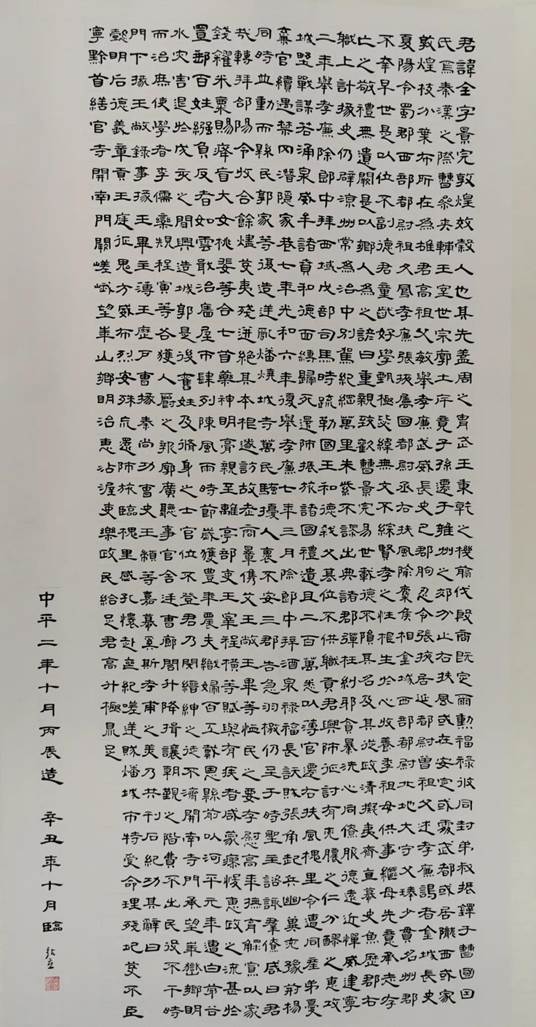 君諱全字景完敦煌效穀人也其先蓋周之冑武王秉乾之機翦伐殷商既定爾勳福祿攸同封弟叔振鐸于曹國因
氏焉秦漢之際曹參夾輔王室世宗廓土斥竟子孫遷于雍州之郊分止右扶風或在安定或處武都或居隴西或家
敦煌枝分葉布所在為雄君高祖父敏舉孝廉武威長史巴郡朐忍令張掖居延都尉曾祖父述孝廉謁者金城長史
夏陽令蜀郡西部都尉祖父鳳孝廉張掖屬國都尉丞右扶風隃麋侯相金城西部都尉北地大守父琫少貫名州郡
不幸早世是以位不副德君童齔好學甄極毖緯無文不綜賢孝之性根生於心收養季祖母供事繼母先意承志存
亡之敬禮無遺闕是以鄉人為之諺曰重親致歡曹景完易世載德不隕其名及其從政清擬夷齊直慕史魚歷郡右
職上計掾史仍辟涼州常為治中別駕紀綱萬里朱紫不謬出典諸郡彈枉糾邪貪暴洗心同僚服德遠近憚威建寧
二年舉孝廉除郎中拜西域戊部司馬時疏勒國王和德弒父篡位不供職貢君興師征討有吮膿之仁分醪之惠攻
城野戰謀若涌泉威牟諸賁和德面縛歸死還師振旅諸國禮遺且二百萬悉以簿官遷右扶風槐里令遭同產弟憂
棄官續遇禁冈潛隱家巷七年光和六年復舉孝廉七年三月除郎中拜酒泉祿福長訞賊張角起兵幽冀兗豫荊楊
同時並動而縣民郭家等復造逆亂燔燒城寺萬民騷擾人裏不安三郡告急羽檄仍至于時聖主諮諏羣僚咸曰君
哉轉拜郃陽令收合餘燼芟夷殘迸絕其本根遂訪故老商量儁艾王敞王畢等恤民之要存慰高年撫育鰥寡以家
錢糴米粟賜癃盲大女桃婓等合七首藥神明膏親至離亭部吏王宰程橫等賦與有疾者咸蒙瘳悛惠政之流甚於
置郵百姓繈負反者如雲戢治廧屋市肆列陳風雨時節歲獲豐年農夫織婦百工戴恩縣前以河平元年遭白茅谷
水災害退於戊亥之間興造城郭是後舊姓及脩身之士官位不登君乃閔縉紳之徒不濟開南寺門承望華嶽鄉明
而治庶使學者李儒欒規程寅等各獲人爵之報廓廣聽事官舍廷曹廊閣升降揖讓朝覲之階費不出民役不干時
門下掾王敞錄事掾王畢主簿王歷戶曹掾秦尚功曹史王顓等嘉慕奚斯考甫之美乃共刊石紀功其辭曰
懿明后德義章貢王庭征鬼方威布烈安殊巟還師旅臨槐里感孔懷赴喪紀嗟逆賊燔城市特受命理殘圮芟不臣
寧黔首繕官寺開南門闕嵯峨望華山鄉明治惠沾渥吏樂政民給足君高升極鼎足
中平二年十月丙辰造 辛丑年十月臨